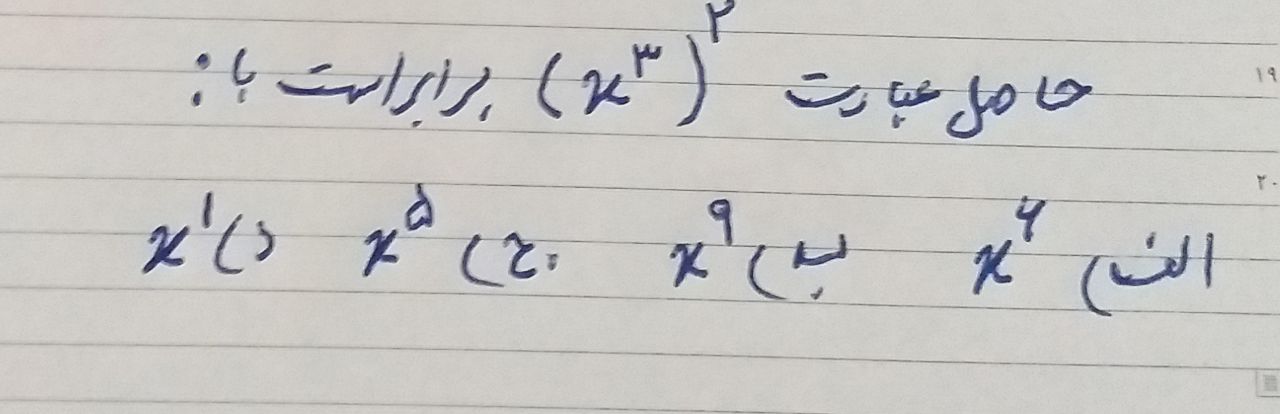 حاصل عبارت (x^۳)^۲ برابر است با:
الف) x^۶ ب) x^۹ ج) x^۵ د) x^۱
۱۹
۲۰